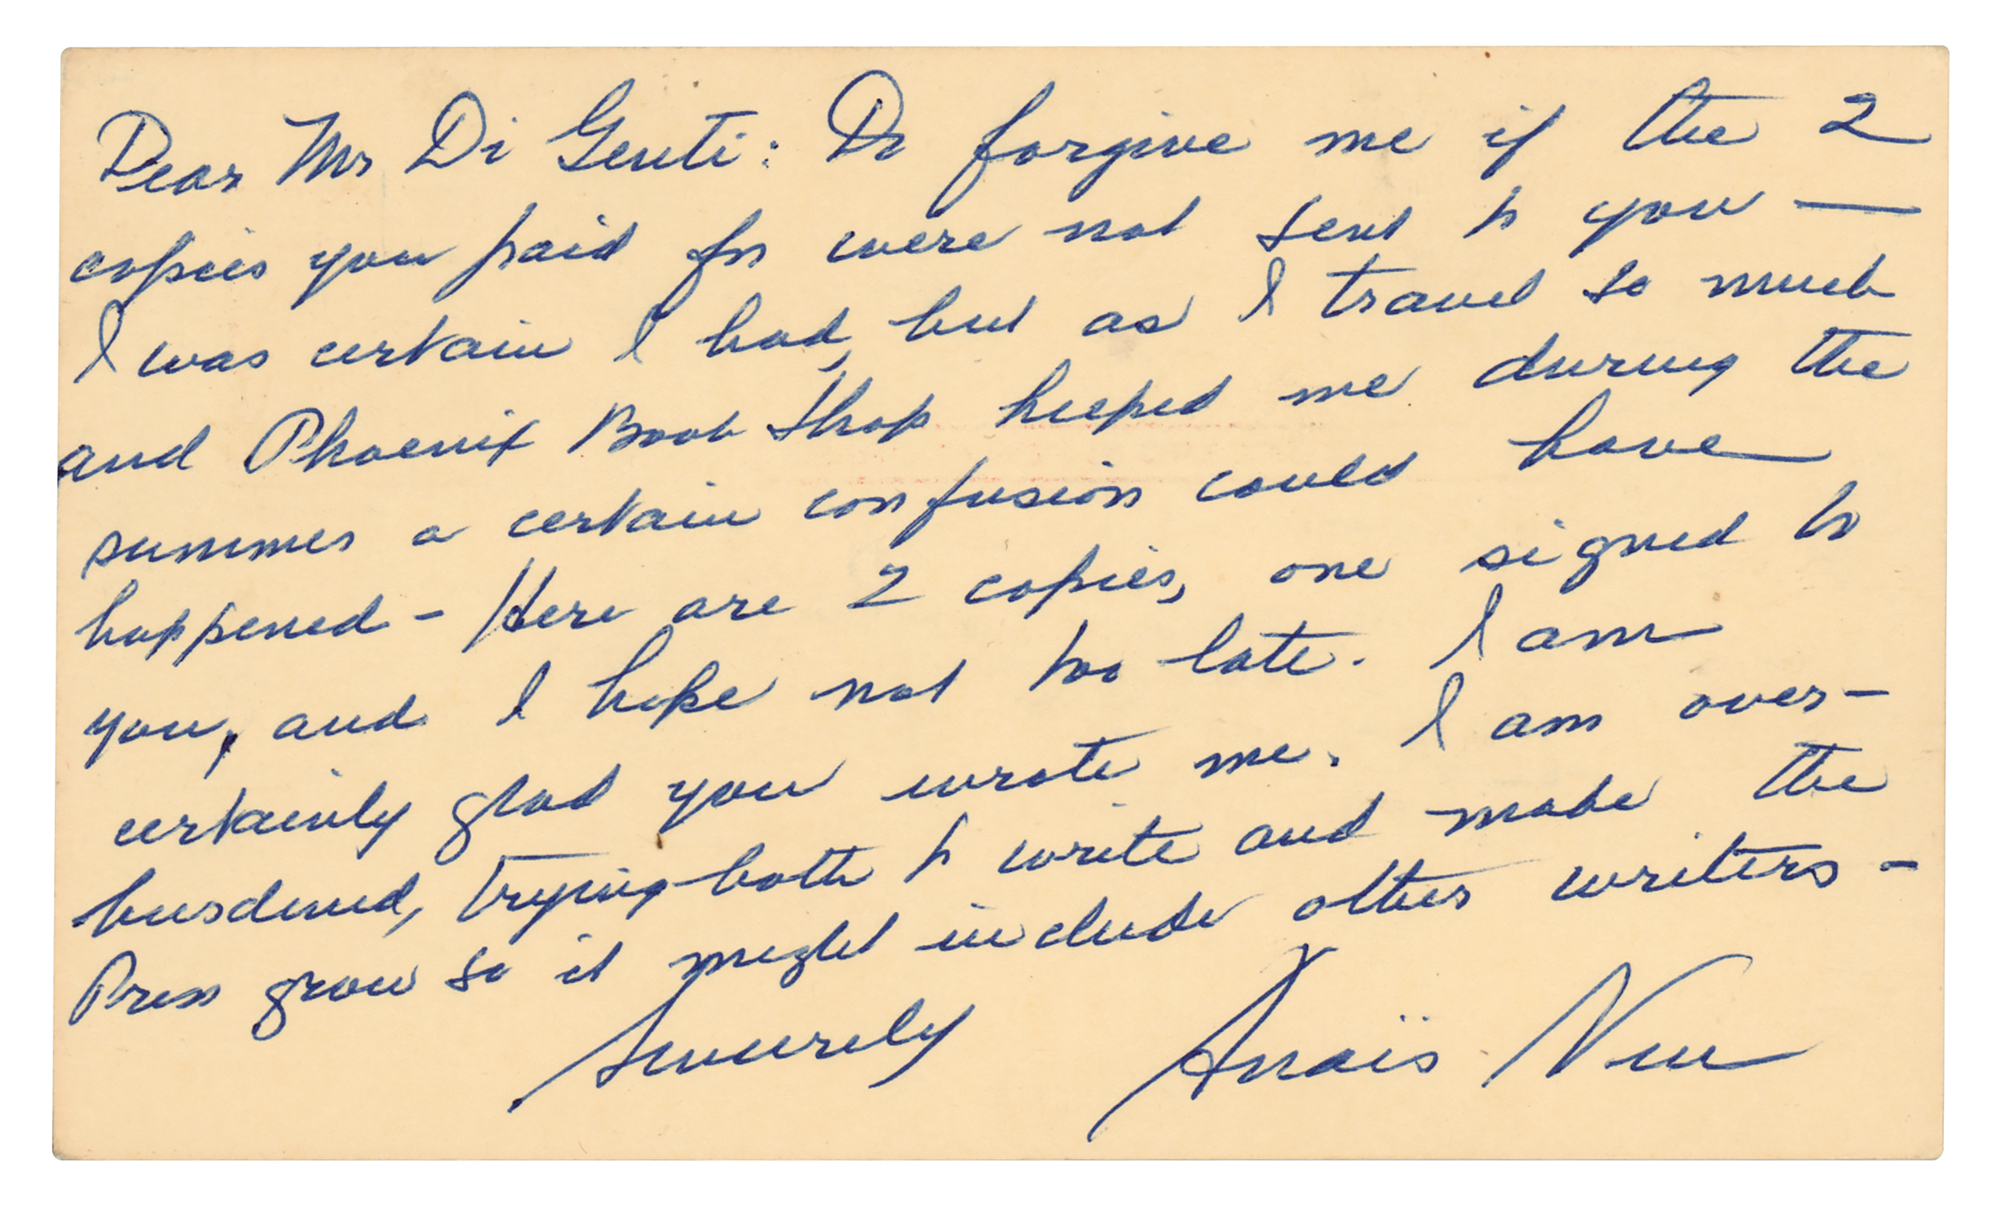 Dear Mr Di Genti: Do forgive me if the 2
copies you paid for were not sent to you —
I was certain I had, but as I travel so much
and Phoenix Book Shop helped me during the
summer a certain confusion could have
happened - Here are 2 copies, one signed to
you, and I hope not too late. I am
certainly glad you wrote me. I am over-
burdened, trying both to write and make the
Press grow so it might include other writers -
Sincerely Anaïs Nin